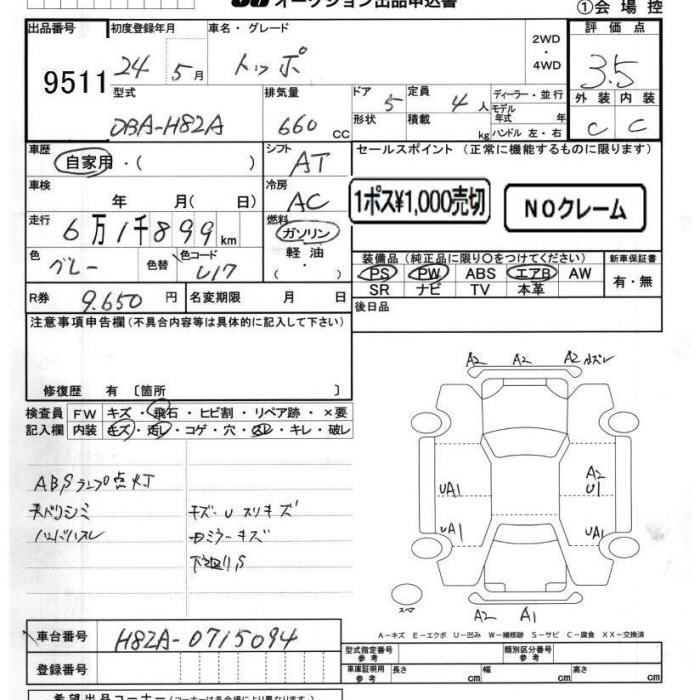 オークション出品申込書
①会場控
出品番号 初度登録年月 車名・グレード 評価点
9511 24年5月 トッポ 2WD・4WD 3.5
型式 排気量 ドア 定員 ディーラー・並行
DBA-H82A 660cc 5 4人 モデル年式 年
形状 積載 kg ハンドル 左・右
外装 内装
C C
車歴 自家用・( ) シフト AT セールスポイント (正常に機能するものに限ります)
車検 年 月( 日) 冷房 AC 1ポス¥1,000売切 NOクレーム
走行 6万1千899km 燃料 ガソリン
軽油・( )
色 グレー 色替 色コード U17
装備品 (純正品に限り○をつけてください) 新車保証書
PS PW ABS エアB AW 有・無
SR ナビ TV 本革
R券 9.650円 名変期限 月 日 後日品
注意事項申告欄 (不具合内容等は具体的に記入して下さい)
修復歴 有 〔箇所 〕
検査員 FW キズ・飛石・ヒビ割・リペア跡・×要
記入欄 内装 キズ・汚レ・コゲ・穴・スレ・キレ・破レ
ABSランプ点灯
天バリシミ
ハンドルスレ
キズ・U スリキズ
ドミラーキズ
下廻りS
A2 A2 A2 ホズレ
UA1 A2
U1
UA1 UA1
スペア
A2 A1
A-キズ E-エクボ U-凹み W-補修跡 S-サビ C-腐食 XX-交換済
車台番号 H82A-0715094
登録番号
型式指定番号 参考 類別区分番号 参考
車庫証明用 参考 長さ cm 幅 cm 高さ cm
希望出品コーナー (コーナーは各会場により異なります)